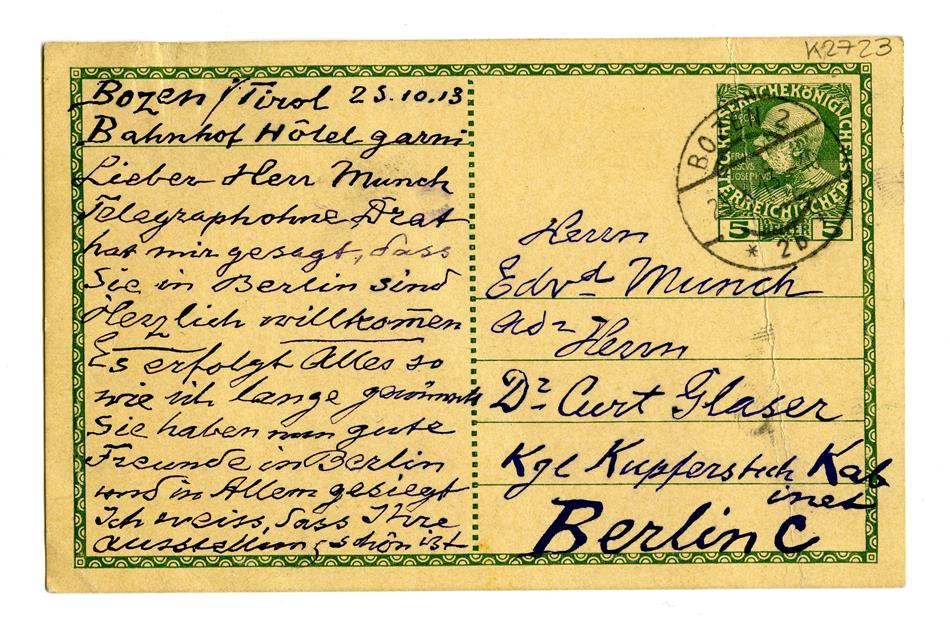 K2723
Bozen / Tirol 25.10.13
Bahnhof Hôtel garni
Lieber Herr Munch
Telegraph ohne Drat
hat mir gesagt, dass
Sie in Berlin sind
Herzlich willkom̅en
Es erfolgt Alles so
wie ich lange gewünscht
Sie haben nun gute
Freunde in Berlin
und in Allem gesiegt
Ich weiss, dass Ihre
Ausstellung schön ist
BOZEN 2
* 2b
5 HELLER 5
Herrn
Edvd Munch
adr
Herrn
Dr Curt Glaser
Kgl Kupferstich Kab
inet
Berlin C